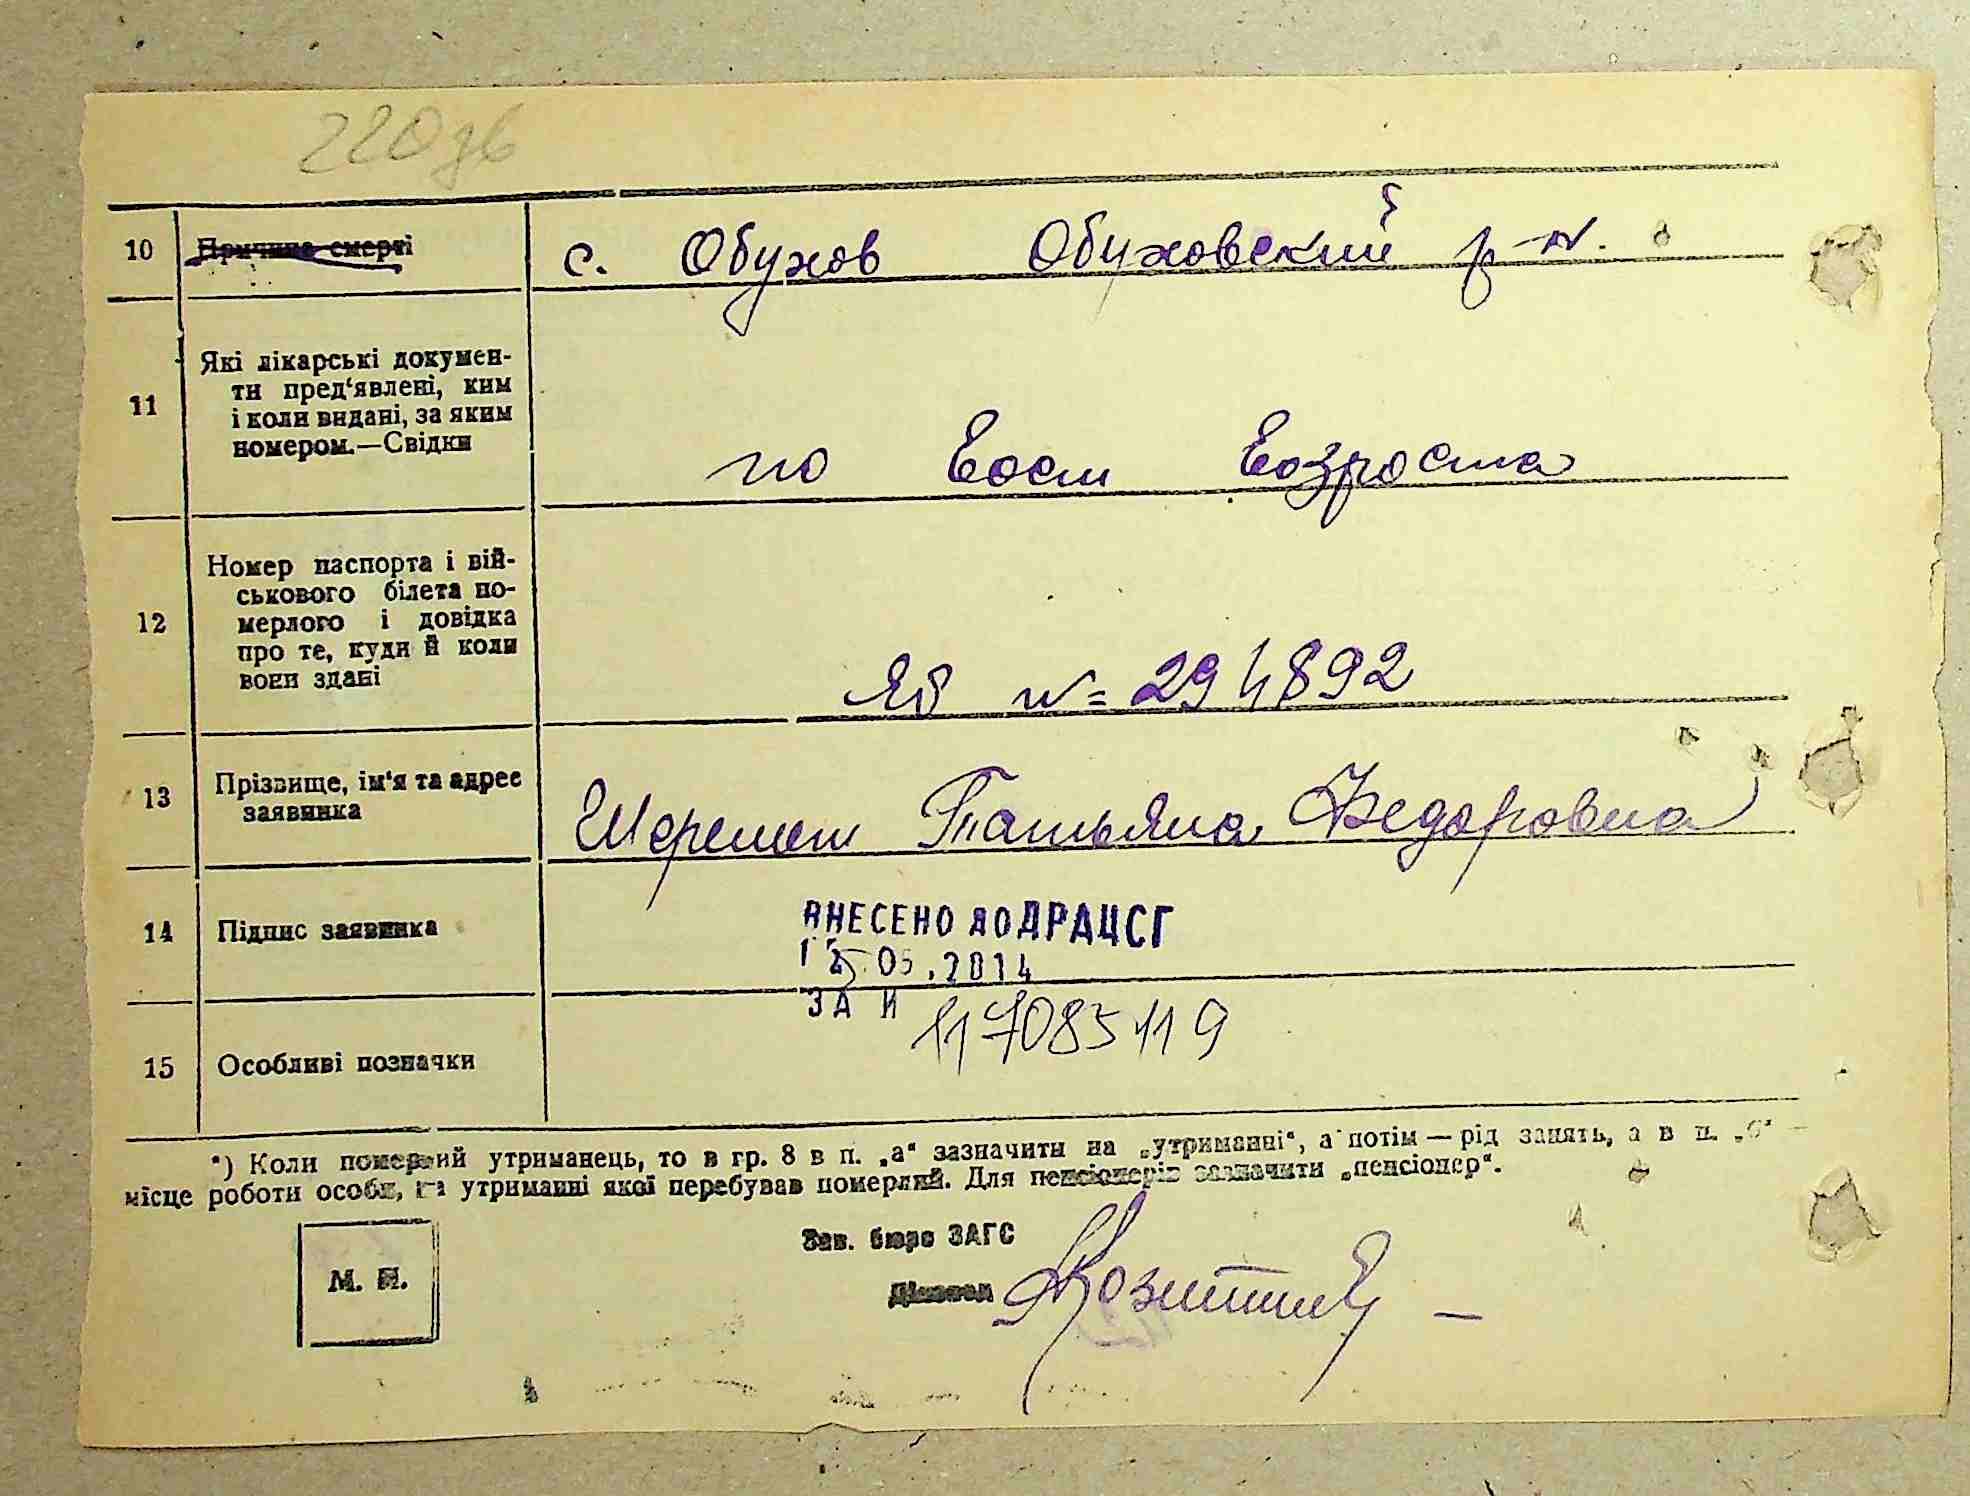 220зв
10 Причина смерті с. Обухов Обуховский р-н.
11 Які лікарські докумен-
ти пред'явлені, ким
і коли видані, за яким
номером.—Свідки
по восст возроста
12 Номер паспорта і вій-
ськового білета по-
мерлого і довідка
про те, куди й коли
вони здані
№= 294892
13 Прізвище, ім'я та адрес
заявника
Шеремет Татьяна Федоровна
14 Підпис заявника
ВНЕСЕНО ДО ДРАЦСГ
05.2014
ЗА N 117085119
15 Особливі позначки
*) Коли померлий утриманець, то в гр. 8 в п. „а“ зазначити на „утриманні“, а потім — рід занять, а в п. „б“ —
місце роботи особи, на утриманні якої перебував померлий. Для пенсіонерів зазначити „пенсіонер“.
Зав. бюро ЗАГС
М. П.
Діловод